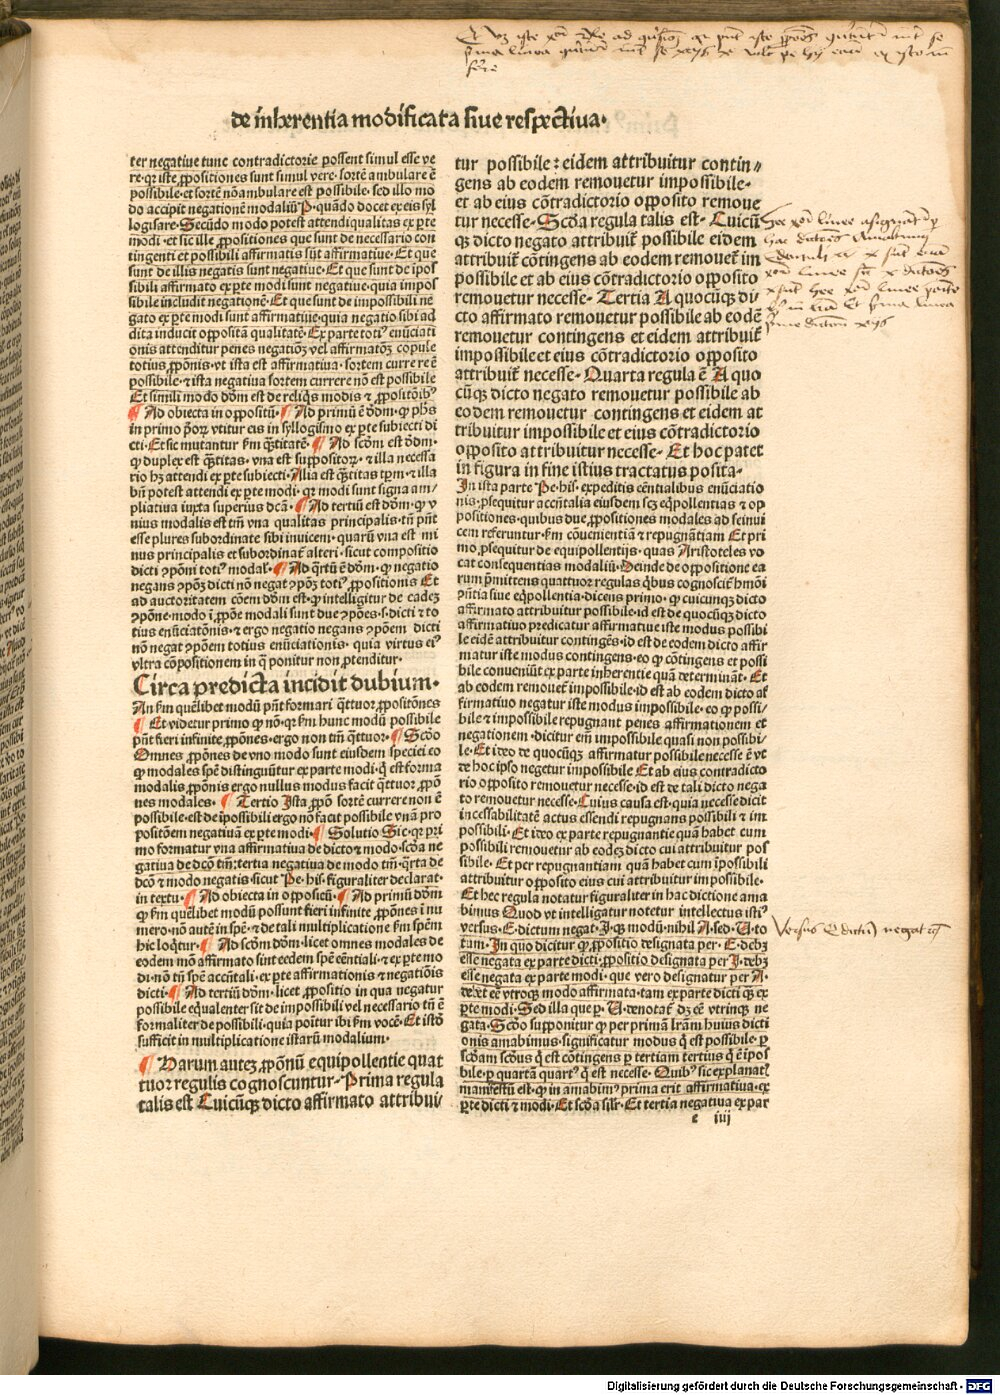 de inherentia modificata siue respectiua.
ter negatiue tunc contradictorie possent simul esse ve
re. qr iste ꝓpositiones sunt simul vere. sortē ambulare ē
possibile. et sortē nō ambulare est possibile. sed illo mo
do accipit negationē modaliū P. quādo docet ex eis syl
logisare. Secūdo modo potest attendi qualitas ex pte
modi. et sic ille ꝓpositiones que sunt de necessario con
tingenti et possibili affirmatis sūt affirmatiue. Et que
sunt de illis negatis sunt negatiue. Et que sunt de ipos
sibili affirmato ex pte modi sunt negatiue. quia impos
sibile includit negationē. Et que sunt de impossibili ne
gato ex pte modi sunt affirmatiue. quia negatio sibi ad
dita inducit oppositā qualitatē. Ex parte toti⁹ enūciati
onis attenditur penes negatiōꝫ vel affirmatiōꝫ copule
totius ꝓpōnis. vt ista est affirmatiua. sortem currere ē
possibile. ⁊ ista negatiua sortem currere nō est possibile
Et simili modo dōm est de reliqͥs modis ⁊ ꝓpositōib⁹
¶ Ad obiecta in oppositū. ¶ Ad primū ē dōm. ꝙ phs
in primo pōrꝝ vtitur eis in syllogismo ex pte subiecti di
cti. Et sic mutantur ẜm qͣtitatē. ¶ Ad scōm est dōm.
ꝙ duplex est qͣtitas. vna est suppositorꝝ. ⁊ illa necessa
rio hꝫ attendi ex pte subiecti. Alia est qͣtitas tpm. ⁊ illa
bn̄ potest attendi ex pte modi. qr modi sunt signa am/
pliatiua iuxta superius dcā. ¶ Ad tertiū est dōm. ꝙ v
nius modalis est tm̄ vna qualitas principalis. tn̄ pn̄t
esse plures subordinate sibi inuicem. quarū vna est mi
nus principalis et subordinat̄ alteri. sicut compositio
dicti ꝯpōni toti⁹ modal̄. ¶ Ad qͣrtū ē dōm. ꝙ negatio
negans ꝯpōꝫ dicti nō negat ꝯpōꝫ toti⁹ ꝓpositionis Et
ad auctoritatem cōem dōm est. ꝙ intelligitur de eadeꝫ
ꝯpōne. modo ī ꝓpōne modali sunt due ꝯpōes. s. dicti ⁊ to
tius enūciatōnis. ⁊ ergo negatio negans ꝯpōem dicti
nō negat ꝯpōem totius enūciationis. quia virtus ei⁹
vltra cōpositionem in qͣ ponitur non ꝓtenditur.
Circa predicta incidit dubium.
An ẜm quēlibet modū pn̄t formari qͣttuor ꝓpositōnes
¶ Et videtur primo ꝙ nō. qr ẜm hunc modū possibile
pn̄t fieri infinite ꝓpōnes. ergo non tm̄ qͣttuor. ¶ Scōo
Omnes ꝓpōnes de vno modo sunt eiusdem speciei eo
ꝙ modales spē distinguūtur ex parte modi. qͥ est forma
modalis ꝓpōnis ergo nullus modus facit qͣttuor ꝓpō
nes modales. ¶ Tertio Ista ꝓpō sortē currere non ē
possibile. est de īpossibili ergo nō facit possibile vnā pro
positōem negatiuā ex pte modi. ¶ Solutio Sic. qr pri
mo formatur vna affirmatiua de dicto ⁊ modo. scōa ne
gatiua de dcō tm̄. tertia negatiua de modo tm̄. qͣrta de
dcō ⁊ modo negatis sicut Pe. his. figuraliter declarat.
in textu. ¶ Ad obiecta in oppositū. ¶ Ad primū dōm
ꝙ ẜm quēlibet modū possunt fieri infinite ꝓpōnes ī nu
mero. nō autē in spē. ⁊ de tali multiplicatione ẜm spēm
hic loqͥtur. ¶ Ad scōm dōm. licet omnes modales de
eodem mō affirmato sint eedem spē cēntiali. ⁊ ex pte mo
di. nō tn̄ spē accn̄tali. ex pte affirmationis ⁊ negatiōis
dicti. ¶ Ad tertiū dōm. licet ꝓpositio in qua negatur
possibile equalenter sit de impossibili vel necessario tn̄ ē
formaliter de possibili. quia ponitur ibi ẜm vocē. Et istō
sufficit in multiplicatione istarū modalium.
¶ Harum autez ꝓpōnū equipollentie quat
tuor regulis cognoscuntur. Prima regula
talis est Cuicūqꝫ dicto affirmato attribui/
tur possibile: eidem attribuitur contin/
gens ab eodem remouetur impossibile.
et ab eius contradictorio opposito remoue
tur necesse. Scōa regula talis est. Cuicū
qꝫ dicto negato attribuit̄ possibile eidem
attribuit̄ cōtingens ab eodem remouet̄ im
possibile et ab eius cōtradictorio opposito
remouetur necesse. Tertia A quocūqꝫ di
cto affirmato remouetur possibile ab eodē
remouetur contingens et eidem attribuit̄
impossibile et eius cōtradictorio opposito
attribuit̄ necesse. Quarta regula ē A quo
cūqꝫ dicto negato remouetur possibile ab
eodem remouetur contingens et eidem at
tribuitur impossibile et eius cōtradictorio
opposito attribuitur necesse. Et hoc patet
in figura in fine istius tractatus posita.
In ista parte Pe. his. expeditis cēntialibus enūciatio
nis. ꝓsequitur accn̄talia eiusdem scꝫ eqͥpollentias ⁊ op
positiones. quibus due ꝓpositiones modales ad seinui
cem referuntur. ẜm cōuenientiā ⁊ repugnātiam Et pri
mo. ꝓsequitur de equipollentijs. quas Aristoteles vo
cat consequentias modaliū. Deinde de oppositione ea
rum p̄mittens quattuor regulas qͥbus cognoscit̄ hmōi
ꝯn̄tia siue eqͥpollentia. dicens primo. ꝙ cuicunqꝫ dicto
affirmato attribuitur possibile. id est de quocūqꝫ dicto
affirmatiuo predicatur affirmatiue iste modus possibi
le eidē attribuitur contingēs. id est de eodem dicto affir
matur iste modus contingens. eo ꝙ cōtingens et possi
bile conueniūt ex parte inherentie quā determināt. Et
ab eodem remouet̄ impossibile. id est ab eodem dicto af
firmatiuo negatur iste modus impossibile. eo ꝙ possi/
bile ⁊ impossibile repugnant penes affirmationem et
negationem. dicitur em̄ impossibile quasi non possibi/
le. Et ideo de quocūqꝫ affirmatur possibile necesse ē vt
de hoc ipso negetur impossibile Et ab eius contradicto
rio opposito remouetur necesse. id est de tali dicto nega
to remouetur necesse. Cuius causa est. quia necesse dicit
incessabilitatē actus essendi repugnans possibili ⁊ im
possibili. Et ideo ex parte repugnantie quā habet cum
possibili remouetur ab eodeꝫ dicto cui attribuitur pos
sibile. Et per repugnantiam quā habet cum īpossibili
attribuitur opposito eius cui attribuitur impossibile.
Et hec regula notatur figuraliter in hac dictione ama
bimus Quod vt intelligatur notetur intellectus isti⁹
versus. E. dictum negat. I. qꝫ modū. nihil A. sed. U. to
tam. In quo dicitur ꝙ ꝓpositio designata per. E. debꝫ
esse negata ex parte dicti. ꝓpositio designata per. I. debꝫ
esse negata ex parte modi. que vero designatur per A.
debet eē vtroqꝫ modo affirmata. tam ex parte dicti qͣꝫ ex
pte modi. Sed illa que p. U. denotat̄ dꝫ eē vtrinqꝫ ne
gata. Scōo supponitur ꝙ per primā lrām huius dicti
onis amabimus. significatur modus qͥ est possibile. p
scōam scōus qͥ est cōtingens p tertiam tertius qͥ ē ipos
bile. p quartā quart⁹ qͥ est necesse. Quib⁹ sic explanat⁹
manifestū est. ꝙ in amabim⁹ prima erit affirmatiua. ex
pte dicti ⁊ modi. Et scōa silr. Et tertia negatiua ex par
e iiij
Digitalisierung gefördert durch die Deutsche Forschungsgemeinschaft - DFG